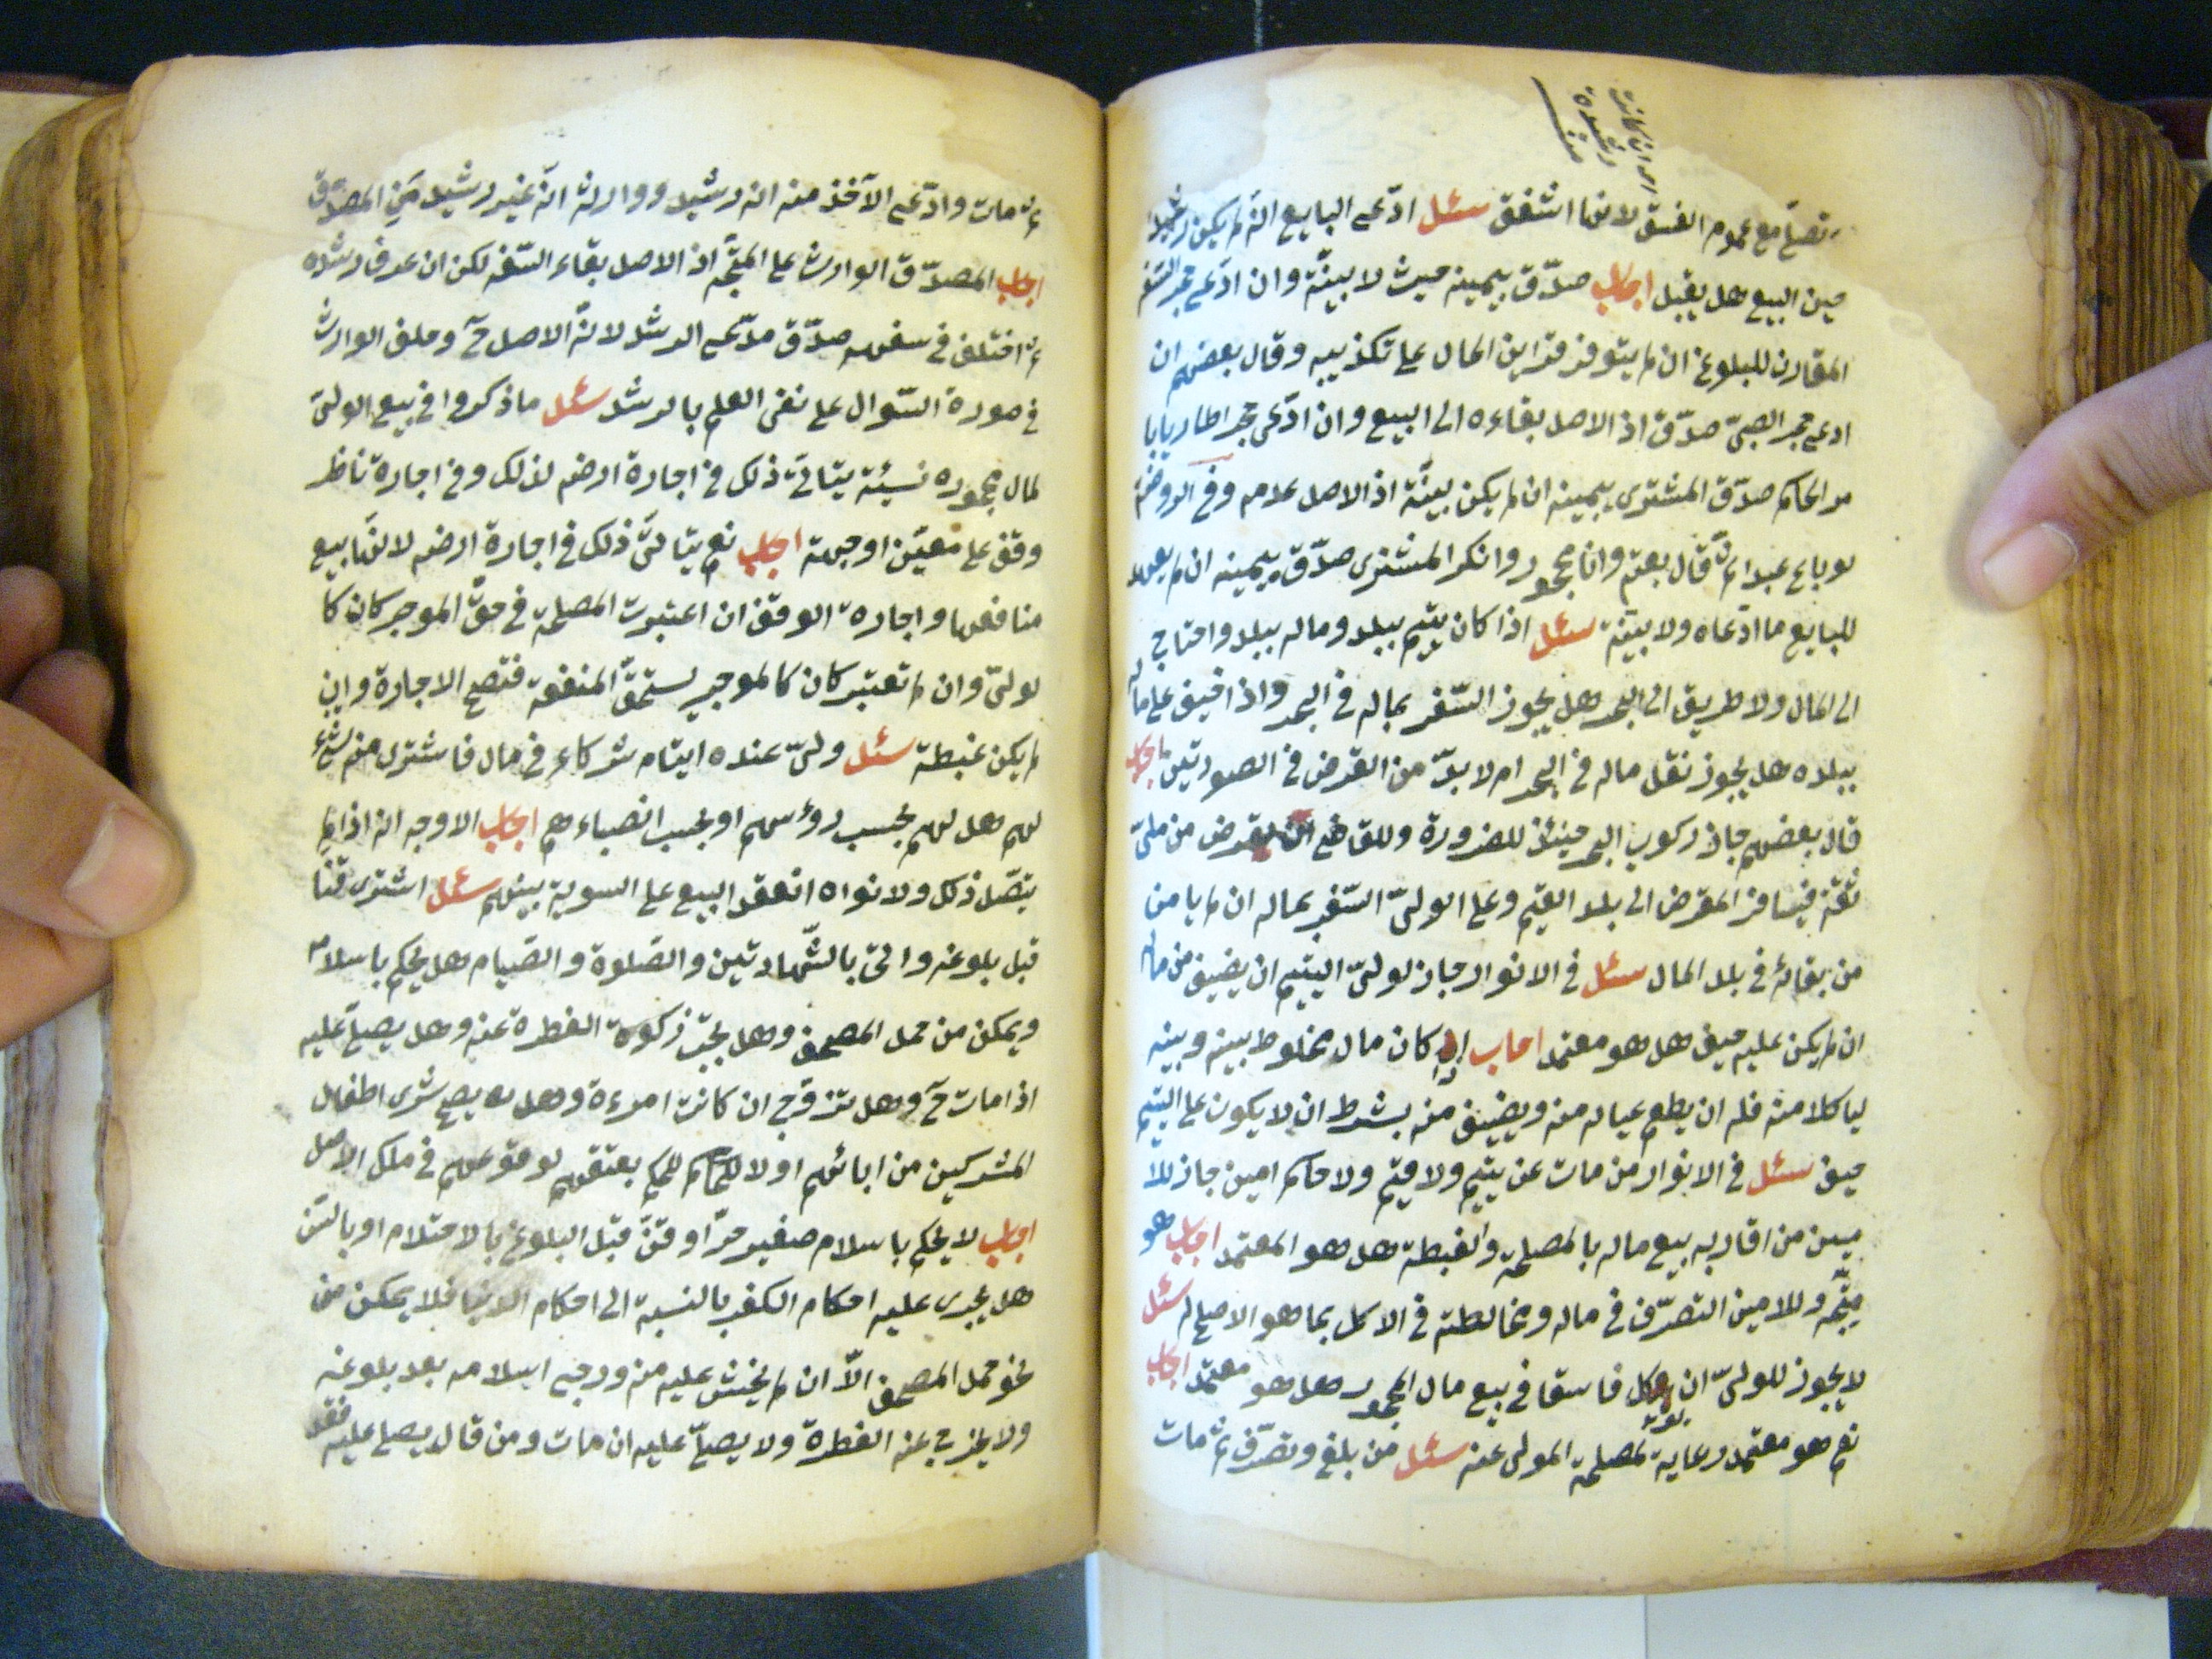 تصح مع عموم الفسق لانها اشفق سئل ادّعى البايع انّه لم يكن رشيدا
حين البيع هل يقبل اجاب صدّق بيمينه حيث لا بيّنة وان ادّعى حجر السفه
المقارن للبلوغ ان لم يتوفر قراين الحال على تكذيبه وقال بعضهم ان
ادعى حجر الصبىّ صدّق اذ الاصل بقاءه الى البيع وان ادّعى حجرا طاريا با
مر الحاكم صدّق المشترى بيمينه ان لم يكن بيّنة اذ الاصل عدمه وفى الروضة
لو باع عبدا ثمّ قال بعته وانا محجور وانكر المشترى صدّق بيمينه ان لم يعهد
للبايع ما ادّعاه ولا بيّنة سئل اذا كان يتيم ببلد وماله ببلد واحتاج
الى المال ولا طريق الى البحر هل يجوز السّفر بماله فى البحر واذا خيف على ماله
ببلده هل يجوز نقل ماله فى البحر ام لا بدّ من القرض فى الصورتين اجاب
قال بعضهم جاز ركوب البحر حينئذ للضرورة وللقاضى ان يقرض من ملىّ
ثقة فيسافر المقرض الى بلد اليتيم وعلى الولىّ السّفر بماله ان لم يا من
من بقائه فى بلد المال سئل فى الانوار جاز لولىّ اليتيم ان يضيف من ماله
ان لم يكن عليه حيف هل هو معتمد اجاب ان كان مال مخلوط بينه وبينه
لياكلا منه فله ان يطعم عياله منه ويضيف منه بشرط ان لا يكون على اليتيم
حيف سئل فى الانوار من مات عن يتيم ولا قيّم ولا حاكم امين جاز للا
مين من اقاربه بيع ماله بالمصلحة والغبطة هل هو المعتمد اجاب هو
متّجه وللامين التصرّف فى ماله ومخالطته فى الاكل بما هو الاصلح له سئل
لا يجوز للولىّ ان يوكل فاسقا فى بيع مال المحجور هل هو معتمد اجاب
نعم هو معتمد رعاية لمصلحة المولى عنه سئل من بلغ وتصرّف ثم مات
ثم مات وادّعى الآخذ منه انه رشيد ووارثه انّه غير رشيد من المصدّق
اجاب المصدّق الوارث على المتّجه اذ الاصل بقاء السّفه لكن ان عرف رشده
ثم اختلف فى سفهه صدّق مدّعى الرشد لانّه الاصل ح وحلف الوارث
فى صورة السّوال على نفى العلم بالرشد سئل ما ذكروا فى بيع الولىّ
لمال محجوره نسيئة يتاتىّ ذلك فى اجارة ارضه لذلك وفى اجارة ناظر
وقف على معيّن او جهة اجاب نعم يتاتىّ ذلك فى اجارة ارضه لانّها بيع
منافعها واجارة الوقف ان اعتبرت المصلحة فى حقّ الموجر كان كا
لولىّ وان لم تعتبر كان كالموجر يستحقّ المنفعة فتصح الاجارة وان
لم يكن غبطة سئل ولىّ عنده ايتام شركاء فى مال فاشترى منه شئ
لهم هل لهم بحسب رؤسهم او بحسب انصباءهم اجاب الاوجه انه اذا لم
يفصّل ذلك ولا نواه انعقد البيع على السوية بينهم سئل اشترى قنّا
قبل بلوغه واتى بالشّهادتين والصّلوة والصّيام هل يحكم باسلامه
ويمكن من حمل المصحف وهل يجب زكوة الفطرة عنه وهل يصلّى عليه
اذا مات ح وهل تزوّج ان كانت امرءة وهل يصح شرى اطفال
المشركين من ابائهم او لا للحكم بعتقهم لوقوعهم فى ملك الاصل
اجاب لا يحكم باسلام صغير حرّ او قنّ قبل البلوغ بالاحتلام او بالسّن
هل يجرى عليه احكام الكفر بالنسبة الى احكام الدنيا فلا يمكن من
نحو حمل المصحف الاّ ان لم يخش عليه منه ورجى اسلامه بعد بلوغه
ولا يخرج عنه الفطرة ولا يصلّى عليه ان مات ومن قال يصلى عليه فقد